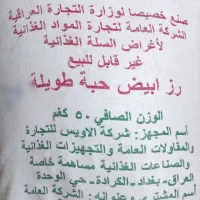 صنع خصيصا لوزارة التجارة العراقية
الشركة العامة لتجارة المواد الغذائية
لأغراض السلة الغذائية
غير قابل للبيع
رز ابيض حبة طويلة
الوزن الصافي ٥٠ كغم
أسم المجهز: شركة الاويس للتجارة
والمقاولات العامة والتجهيزات الغذائية
والصناعات الغذائية مساهمة خاصة
العراق-بغداد-الكرادة-حي الوحدة
أسم المشتري وعنوانه: الشركة العامة